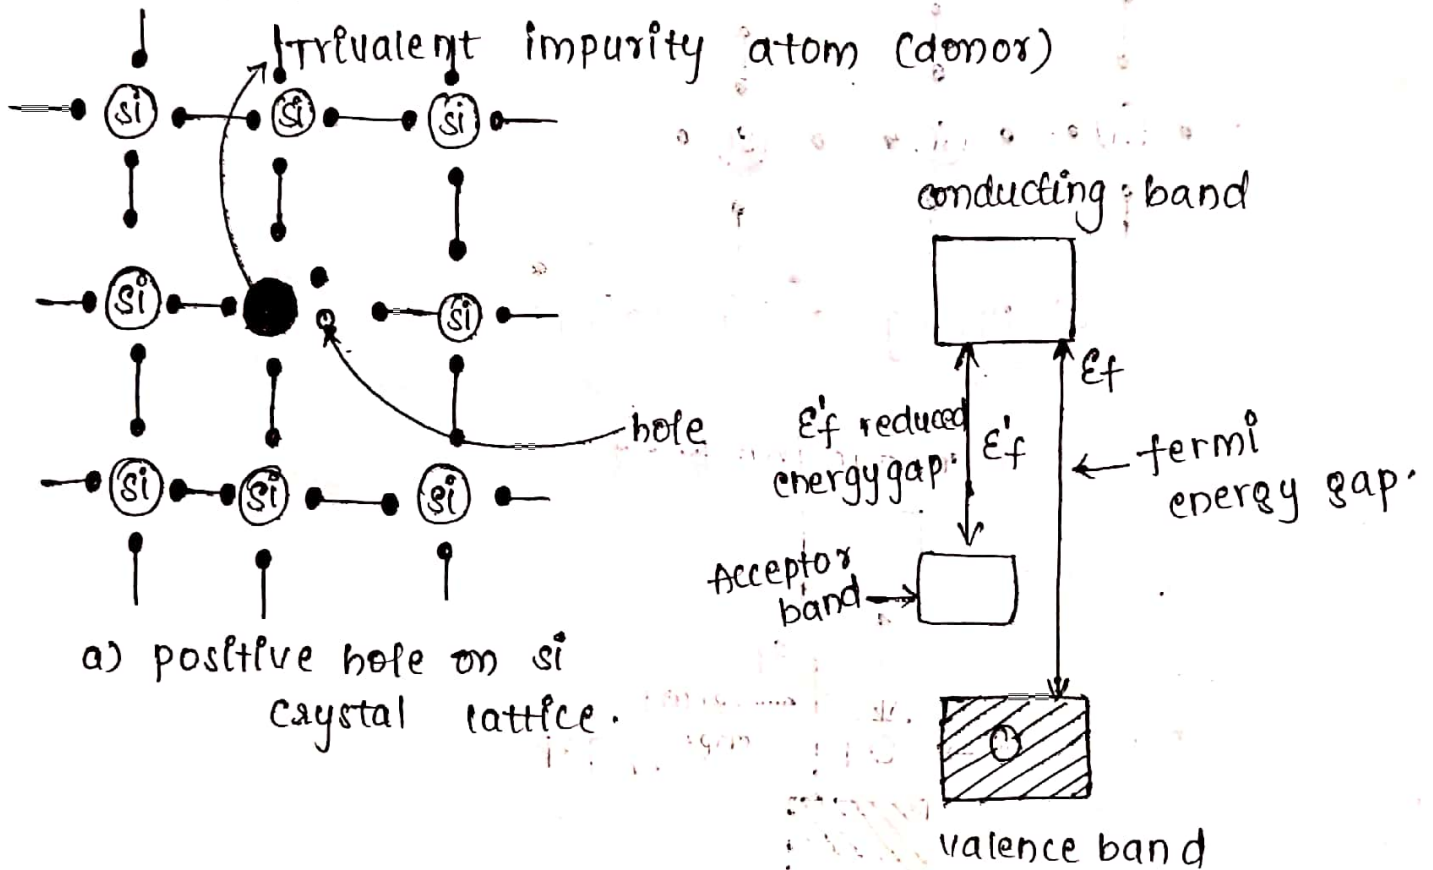 Trivalent impurity atom (donor)
si
si
si
si
si
si
si
si
hole
a) positive hole on si
crystal lattice.
conducting band
Ef
E'f reduced
energy gap.
E'f
fermi
energy gap.
Acceptor
band
valence band